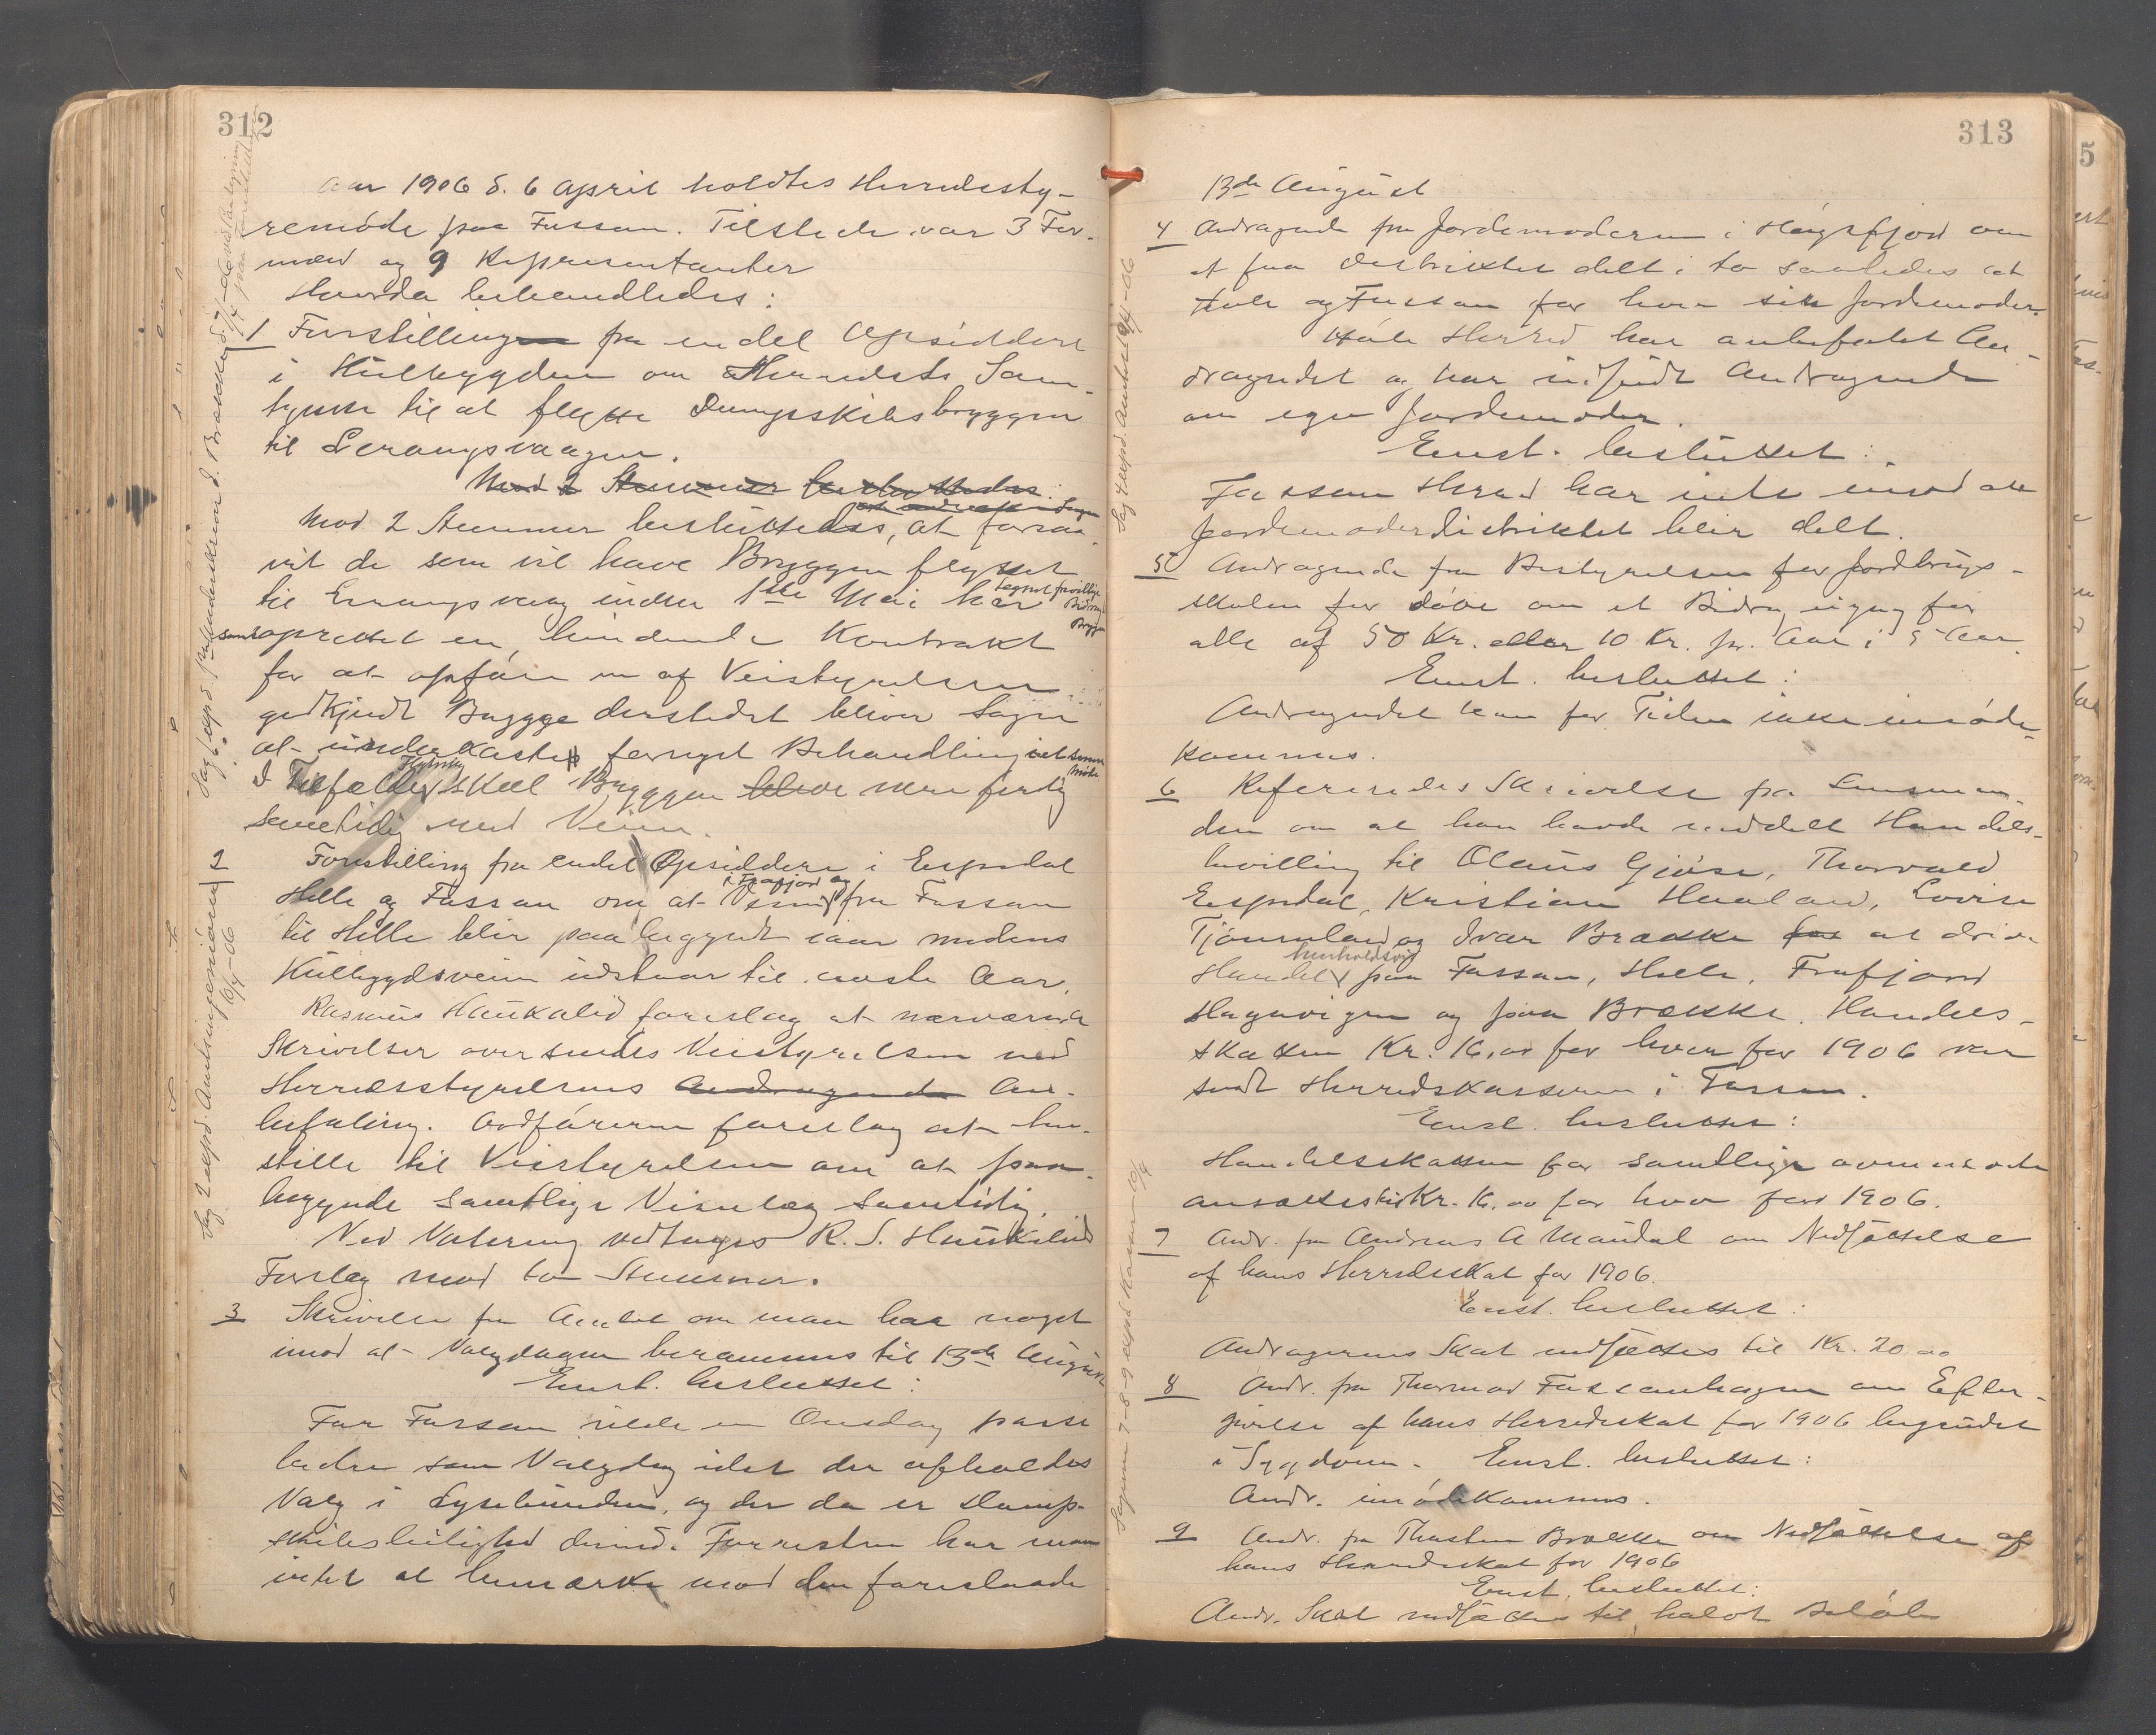 312
Aar 1906 d. 6 April holdtes Herredssty-
remöde paa Fossan. Tilstede var 3 For-
mænd og 9 Repræsentanter
Hvorda behandledes:
1 Forestillingen fra endel Opsiddere
i Hülebygden om Herredets Sam-
tykke til at flytte Dampskibsbryggen
til Lerangsvaagen.
Mod 2 Stemmer besluttedes
Mod 2 Stemmer besluttedes, at forsaa-
vit de som vil have Bryggen flyttet
til Lerangsvaag inden 1ste Mai har tegnet frivillige Bidrag
samt oprettet en bindende Kontrakt
for at opföre en af Veistyrelsen
godkjendt Brygge derstedet bliver Sagen
at underkaste fornyet Behandling i et senere Möde
I Tilfælde skal Bryggen blive være færdig
samtidig med Veien.
2 Forestilling fra endel Opsiddere i Espedal
Helle og Fossan om at Veien i Frafjord og fra Fossan
til Helle blir paabegyndt iaar medens
Hülebygdsveien udstaar til næste Aar.
Rasmus Haukalid foreslog at nærværende
Skrivelser oversendes Veistyrelsen med
Herredsstyrelsens Andragende An-
befaling. Ordföreren foreslog at hen-
stille til Veistyrelsen om at paa-
begynde samtlige Veianlæg samtidig.
Ved Votering vedtoges R. S. Haukalids
Forslag mod to Stemmer.
3 Skrivelse fra Amtet om man har noget
imod at Valgdagen berammes til 13de August
Enst. besluttet:
For Fossan vilde en Onsdag passe
bedre som Valgdag idet der afholdes
Valg i Lysebunden, og der da er Damp-
skibsleilighed derind. Forresten har man
intet at bemærke mod den foreslaaede
Sag 2 expd. Amtsingeniören 10/4-06
313
13de August
4 Andragende fra Jordemoderen i Högsfjord om
at faa Distriktet delt i to saaledes at
Höle og Fossan faar hver sin Jordemoder.
Höle Herred har anbefalet An-
dragendet og har indsendt Andragende
om egen Jordemoder.
Enst. besluttet:
Fossan Herred har intet imod at
Jordemoderdistriktet blir delt.
5 Andragende fra Bestyrelsen for Jordbrugs-
skolen for döve om et Bidrag engang for
alle af 50 Kr. eller 10 Kr. pr. Aar i 5 Aar
Enst. besluttet:
Andragendet kan for Tiden ikke imöde-
kommes.
6 Refereredes Skrivelse fra Lensman-
den om at han havde meddelt Handels-
bevilling til Olaus Gjöse, Thorvald
Espedal, Kristian Haaland, Lovise
Tjörneland og Ivar Brække for at drive
Handel henholdsvis paa Fossan, Helle, Frafjord
Hagavigen og paa Brække. Handels-
skatten Kr. 16,00 for hver for 1906 var
sendt Herredskassereren i Fossan.
Enst. besluttet:
Handelsskatten for samtlige ovennævnte
ansættes til Kr. 16,00 for hver for 1906.
7 Andr. fra Andreas A Maudal om Nedsættelse
af hans Herredsskat for 1906.
Enst. besluttet:
Andragerens Skat nedsættes til Kr. 20 00
8 Andr. fra Thormod Fossanhagen om Efter-
givelse af hans Herredsskat for 1906 begrundet
i Sygdom. Enst. besluttet:
Andr. imödekommes.
9 Andr. fra Thorsten Brække om Nedsættelse af
hans Herredsskat for 1906
Enst. besluttet:
Andr. Skat nedsættes til halvt Belöb
Sag 4 expd. Amtet 10/4-06
Sagerne 7-8-9 expd. Kasser. 10/4